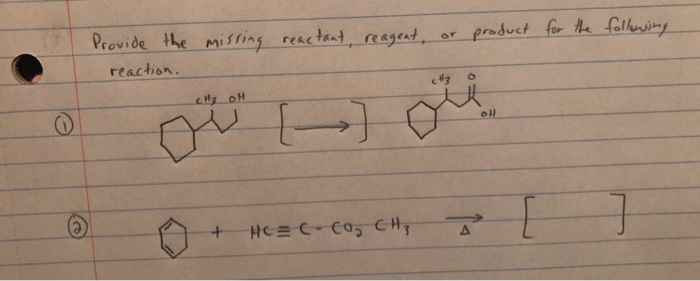 Provide the missing reactant, reagent, or product for the following
reaction.
① CH3 OH [⟶] CH3 O OH
② + HC≡C-CO2CH3 →Δ [ ]